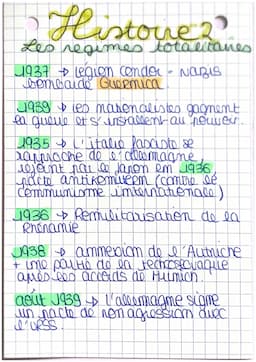 Histoire 2
Les regimes totalitaires
1937 → légion condor - nazis
bombarde Guernica.
1939 → les nationalistes gagnent
la guerre et s'installent au pouvoir.
1935 → l'italie fasciste se
rapproche de l'allemagne,
rejoint par le Japon en 1936
pacte antikomintern (contre le
communisme internationale)
1936 → Remilitarisation de la
Rhénanie
1938 → annnexion de l'Autriche
+ une partie de la
après les accords de Munich.
août 1939 → l'allemagne signe
un pacte de non agression avec
l'URSS.